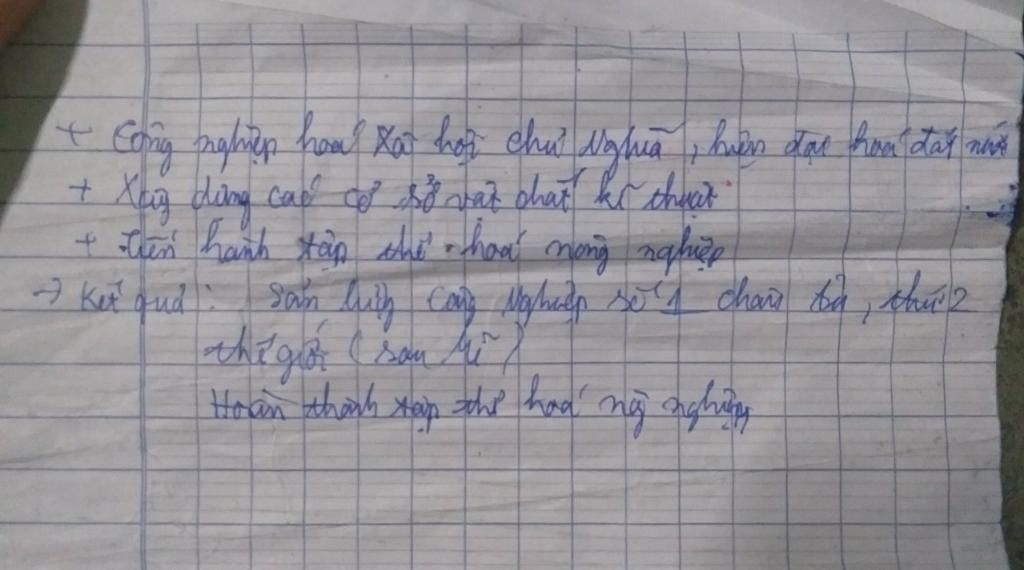 + Công nghiệp hoá Xã hội chủ Nghĩa, hiện đại hoá đất nước
+ Xây dựng các cơ sở vật chất kĩ thuật
+ tiến hành tập thể hoá nông nghiệp
→ Kết quả: Sản lượng Công Nghiệp số 1 châu Âu, thứ 2
thế giới (sau Mĩ)
Hoàn thành tập thể hoá ng nghiệp